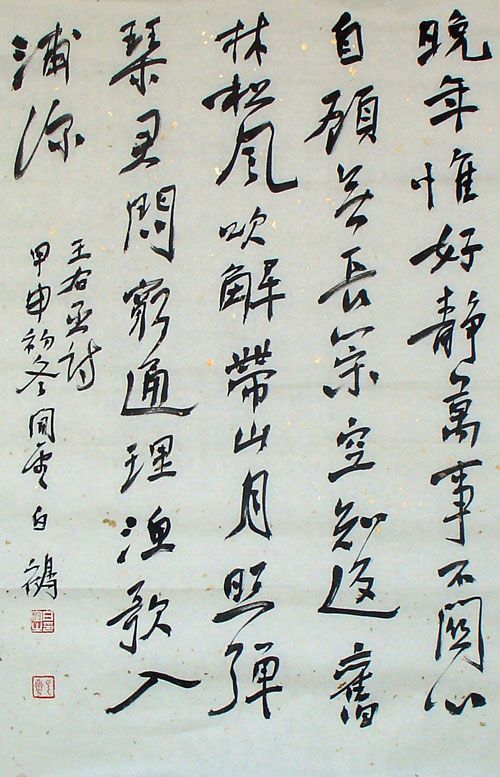 晚年惟好静萬事不關心
自顾無長策空知返舊
林松風吹解帶山月照彈
琴君問窮通理漁歌入
浦深
王右丞詩
甲申初冬閒雲白鶴